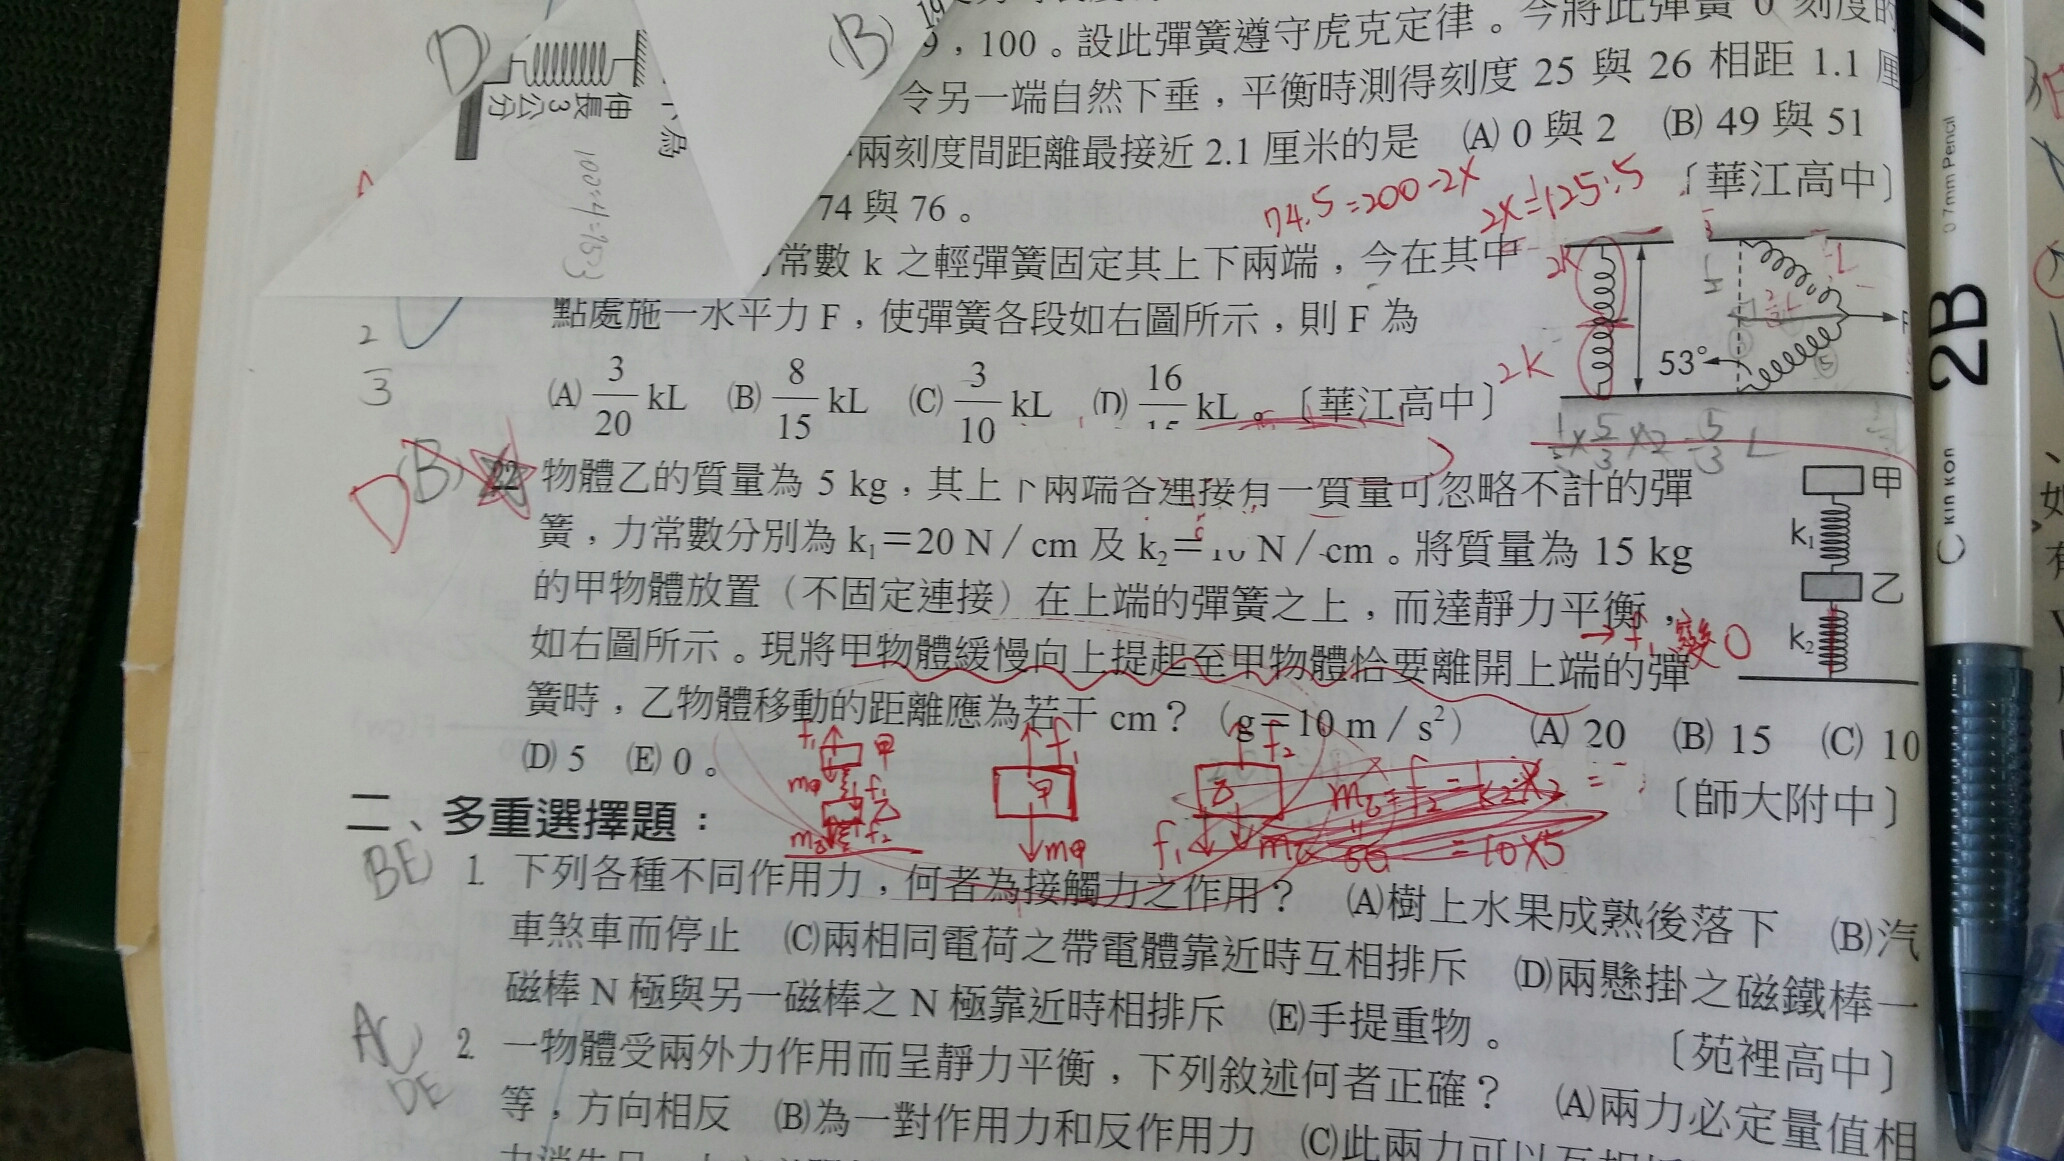 (D)
伸長3公分
100÷4=25÷3
(B)
19
9，100。設此彈簧遵守虎克定律。今將此彈簧 0 刻度的
令另一端自然下垂，平衡時測得刻度 25 與 26 相距 1.1 厘
兩刻度間距離最接近 2.1 厘米的是 (A) 0 與 2 (B) 49 與 51
74 與 76。 〔華江高中〕
74.5=200-2X
2X=125.5
常數 k 之輕彈簧固定其上下兩端，今在其中
點處施一水平力 F，使彈簧各段如右圖所示，則 F 為
(A) 3/20 kL (B) 8/15 kL (C) 3/10 kL (D) 16/15 kL。〔華江高中〕
2K
2K
53°
2/3
D (B) 22 物體乙的質量為 5 kg，其上下兩端各連接有一質量可忽略不計的彈
簧，力常數分別為 k₁＝20 N／cm 及 k₂＝10 N／cm。將質量為 15 kg
的甲物體放置（不固定連接）在上端的彈簧之上，而達靜力平衡，
如右圖所示。現將甲物體緩慢向上提起至甲物體恰要離開上端的彈
簧時，乙物體移動的距離應為若干 cm？（g＝10 m／s²） (A) 20 (B) 15 (C) 10
(D) 5 (E) 0。 〔師大附中〕
→f₁變0
甲
k₁
乙
k₂
f₁ 甲
m甲 f₁
乙
m乙 f₂
f₁
甲
m甲
f₂
乙
f₁ m乙
m乙=f₂=k₂X₂=
50 =10×5
二、多重選擇題：
BE 1. 下列各種不同作用力，何者為接觸力之作用？ (A)樹上水果成熟後落下 (B)汽
車煞車而停止 (C)兩相同電荷之帶電體靠近時互相排斥 (D)兩懸掛之磁鐵棒一
磁棒 N 極與另一磁棒之 N 極靠近時相排斥 (E)手提重物。 〔苑裡高中〕
AC DE 2. 一物體受兩外力作用而呈靜力平衡，下列敘述何者正確？ (A)兩力必定量值相
等，方向相反 (B)為一對作用力和反作用力 (C)此兩力可以互相
0.7mm Pencil
2B